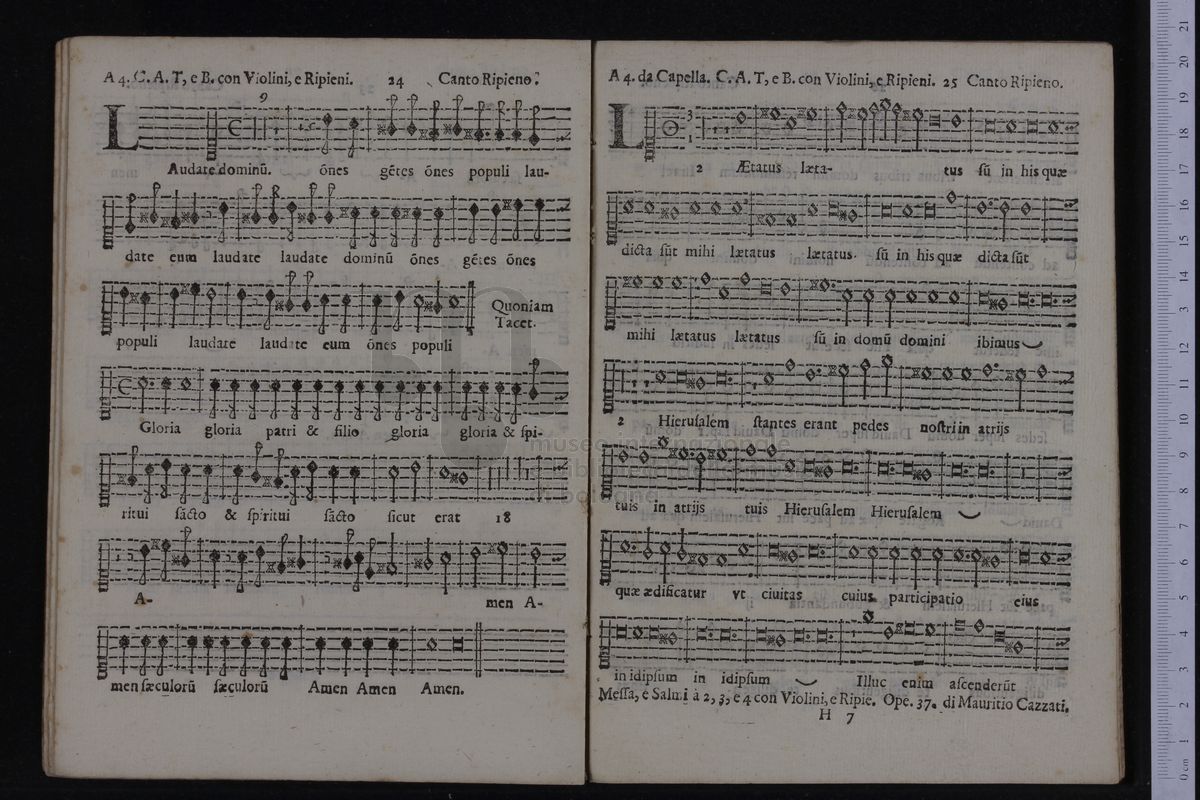 A 4. C. A. T, e B. con Violini, e Ripieni. 24 Canto Ripieno.
9
L
Audate dominū. ōnes gētes ōnes populi lau-
date eum laudate laudate dominū ōnes gētes ōnes
Quoniam
Tacet.
populi laudate laudate eum ōnes populi
Gloria gloria patri & filio gloria gloria & ſpi-
ritui ſācto & ſpiritui ſācto ſicut erat 18
A- men A-
men ſæculorū ſæculorū Amen Amen Amen.
A 4. da Capella. C. A. T, e B. con Violini, e Ripieni. 25 Canto Ripieno.
L
3
1
2 Ætatus læta- tus sū in his quæ
dicta ſūt mihi lætatus lætatus. ſū in his quæ dicta ſūt
mihi lætatus lætatus ſū in domū domini ibimus
2 Hieruſalem ſtantes erant pedes noſtri in atrijs
tuis in atrijs tuis Hieruſalem Hieruſalem
quæ ædificatur vt ciuitas cuius participatio eius
in idipſum in idipſum Illuc enim aſcenderūt
Meſſa, e Salmi à 2, 3, e 4 con Violini, e Ripie. Ope. 37. di Mauritio Cazzati.
H 7
museo internazionale
biblioteca della musica
di bologna
0 cm 1 2 3 4 5 6 7 8 9 10 11 12 13 14 15 16 17 18 19 20 21